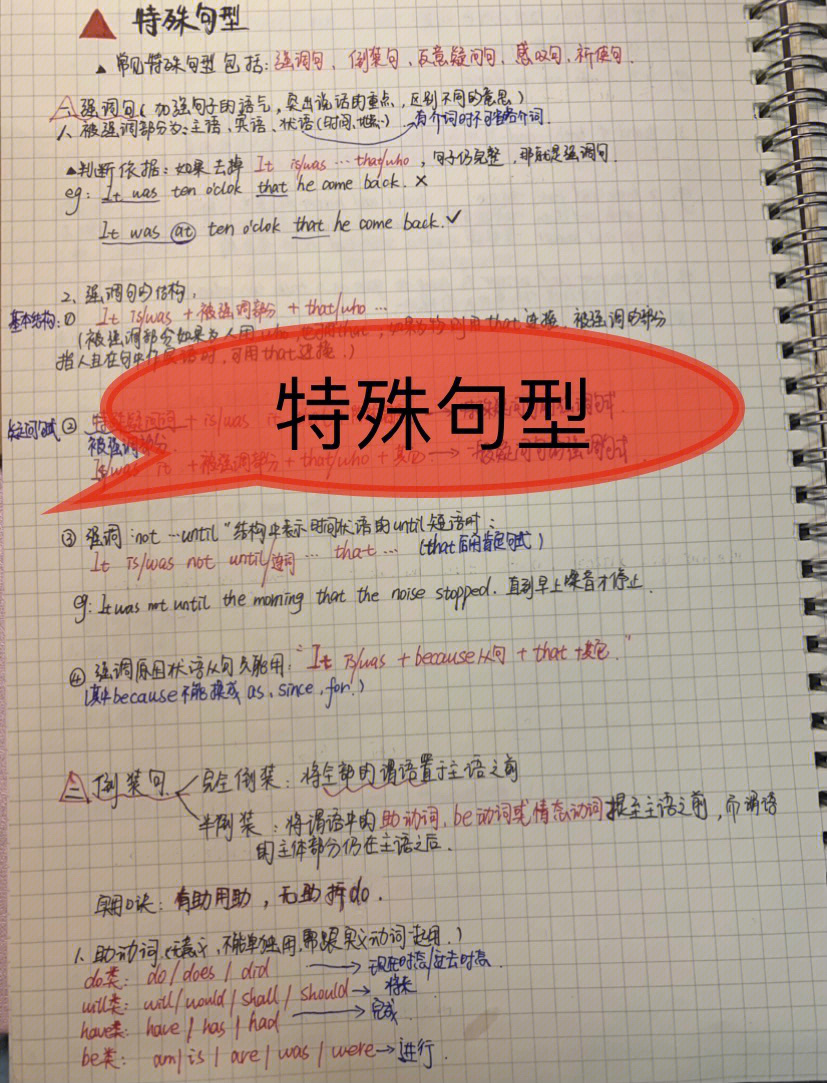 特殊句型
▲常见特殊句型包括：强调句、倒装句、反意疑问句、感叹句、祈使句.
一、强调句(加强句子的语气，突出说话的重点，区别不同的意思)
1、被强调部分为：主语、宾语、状语(时间、地点)→有介词时不可省略介词.
▲判断依据：如果去掉 It is/was … that/who，句子仍完整，那就是强调句.
eg: It was ten o'clok that he come back. ×
It was at ten o'clok that he come back. ✓
2、强调句的结构：
基本结构：① It is/was + 被强调部分 + that/who …
(被强调部分如果为人用who,也可用that，如果为物则用that连接，被强调的部分
指人且在句中作宾语时，可用that连接.)
特殊句型
疑问句式 ② 特殊疑问词 + is/was it
被强调部分
Is/was it + 被强调部分 + that/who + 其它 → 一般疑问句的强调句式
③ 强调"not …until"结构中表示时间状语的until短语时：
It is/was not until/连词 … that … (that后用肯定句式)
eg: It was not until the morning that the noise stopped. 直到早上噪音才停止.
④ 强调原因状语从句只能用："It is/was + because从句 + that + 其它."
(其中because不能换成 as、since、for.)
二、倒装句
完全倒装：将全部的谓语置于主语之前
半倒装：将谓语中的助动词、be动词或情态动词提至主语之前，而谓语
的主体部分仍在主语之后.
口诀：有助用助，无助拆do.
1、助动词(无意义，不能单独用，需跟实义动词连用.)
do类：do / does / did → 现在时态/过去时态
will类：will / would / shall / should → 将来
have类：have / has / had → 完成
be类：am / is / are / was / were → 进行.